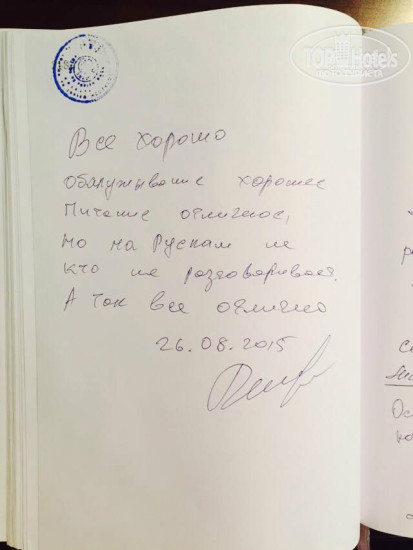 TOP Hotels
Все хорошо
обслуживание хорошее
Питание отличное,
Но на Руском не
кто не разговаривает.
А так все отлично
26.08.2015